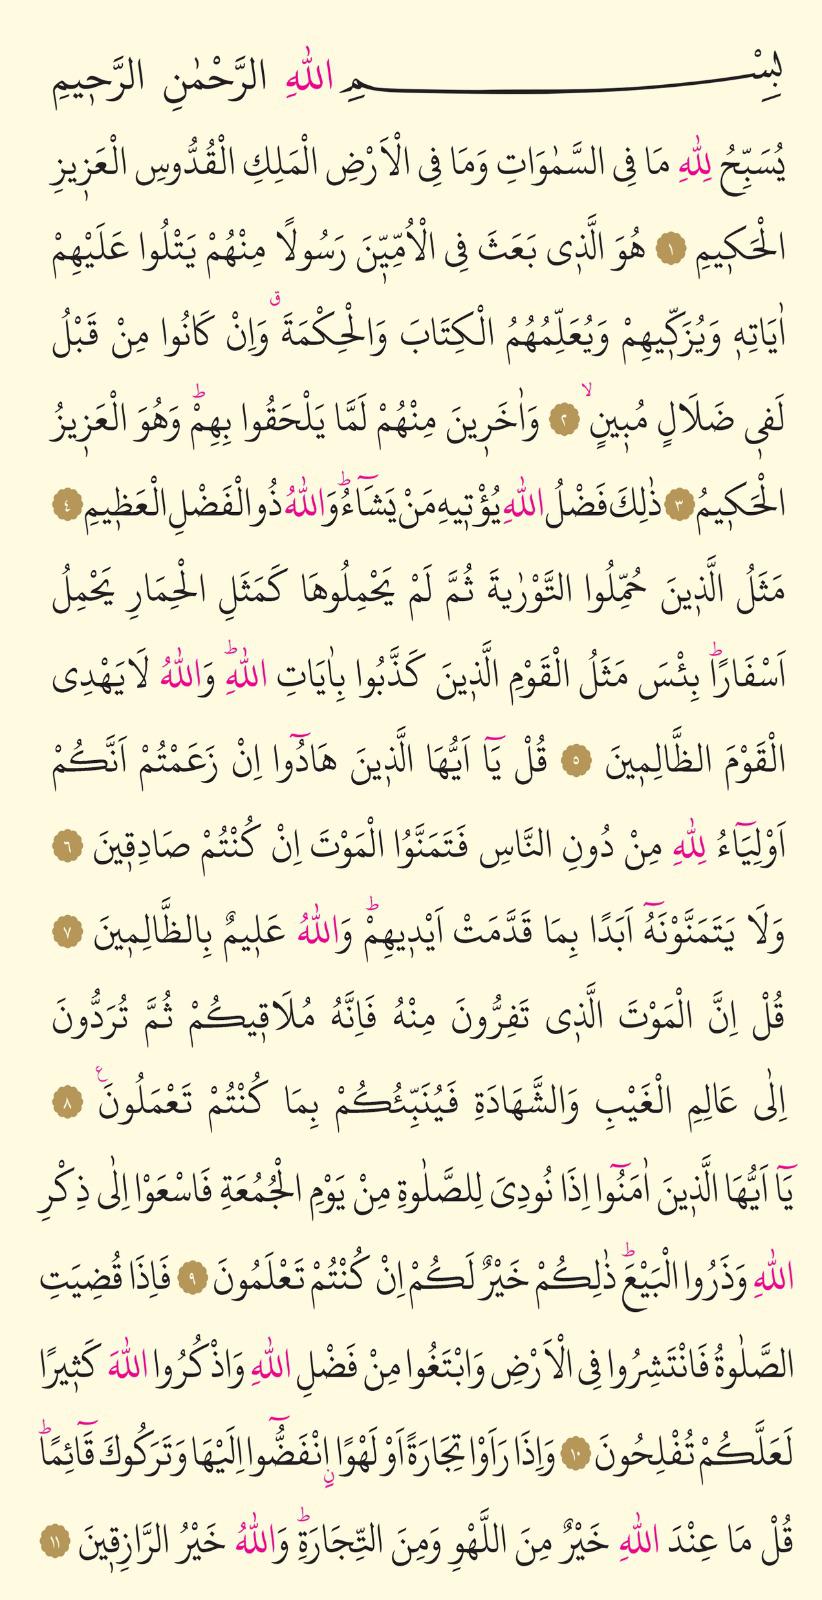 بِسْمِ اللّٰهِ الرَّحْمٰنِ الرَّحٖيمِ
يُسَبِّحُ لِلّٰهِ مَا فِى السَّمٰوَاتِ وَمَا فِى الْاَرْضِ الْمَلِكِ الْقُدُّوسِ الْعَزٖيزِ
الْحَكٖيمِ ﴿١﴾ هُوَ الَّذٖى بَعَثَ فِى الْاُمِّيّٖنَ رَسُولًا مِنْهُمْ يَتْلُوا عَلَيْهِمْ
اٰيَاتِهٖ وَيُزَكّٖيهِمْ وَيُعَلِّمُهُمُ الْكِتَابَ وَالْحِكْمَةَ ق وَاِنْ كَانُوا مِنْ قَبْلُ
لَفٖى ضَلَالٍ مُبٖينٍ ۙ ﴿٢﴾ وَاٰخَرٖينَ مِنْهُمْ لَمَّا يَلْحَقُوا بِهِمْ ؕ وَهُوَ الْعَزٖيزُ
الْحَكٖيمُ ﴿٣﴾ ذٰلِكَ فَضْلُ اللّٰهِ يُؤْتٖيهِ مَنْ يَشَٓاءُ ؕ وَاللّٰهُ ذُو الْفَضْلِ الْعَظٖيمِ ﴿٤﴾
مَثَلُ الَّذٖينَ حُمِّلُوا التَّوْرٰيةَ ثُمَّ لَمْ يَحْمِلُوهَا كَمَثَلِ الْحِمَارِ يَحْمِلُ
اَسْفَارًا ؕ بِئْسَ مَثَلُ الْقَوْمِ الَّذٖينَ كَذَّبُوا بِاٰيَاتِ اللّٰهِ ؕ وَاللّٰهُ لَا يَهْدِى
الْقَوْمَ الظَّالِمٖينَ ﴿٥﴾ قُلْ يَٓا اَيُّهَا الَّذٖينَ هَادُٓوا اِنْ زَعَمْتُمْ اَنَّكُمْ
اَوْلِيَٓاءُ لِلّٰهِ مِنْ دُونِ النَّاسِ فَتَمَنَّوُا الْمَوْتَ اِنْ كُنْتُمْ صَادِقٖينَ ﴿٦﴾
وَلَا يَتَمَنَّوْنَهُٓ اَبَدًا بِمَا قَدَّمَتْ اَيْدٖيهِمْ ؕ وَاللّٰهُ عَلٖيمٌ بِالظَّالِمٖينَ ﴿٧﴾
قُلْ اِنَّ الْمَوْتَ الَّذٖى تَفِرُّونَ مِنْهُ فَاِنَّهُ مُلَاقٖيكُمْ ثُمَّ تُرَدُّونَ
اِلٰى عَالِمِ الْغَيْبِ وَالشَّهَادَةِ فَيُنَبِّئُكُمْ بِمَا كُنْتُمْ تَعْمَلُونَ ع ﴿٨﴾
يَٓا اَيُّهَا الَّذٖينَ اٰمَنُٓوا اِذَا نُودِىَ لِلصَّلٰوةِ مِنْ يَوْمِ الْجُمُعَةِ فَاسْعَوْا اِلٰى ذِكْرِ
اللّٰهِ وَذَرُوا الْبَيْعَ ؕ ذٰلِكُمْ خَيْرٌ لَكُمْ اِنْ كُنْتُمْ تَعْلَمُونَ ﴿٩﴾ فَاِذَا قُضِيَتِ
الصَّلٰوةُ فَانْتَشِرُوا فِى الْاَرْضِ وَابْتَغُوا مِنْ فَضْلِ اللّٰهِ وَاذْكُرُوا اللّٰهَ كَثٖيرًا
لَعَلَّكُمْ تُفْلِحُونَ ﴿١٠﴾ وَاِذَا رَاَوْا تِجَارَةً اَوْ لَهْوًا ࣙ انْفَضُّٓوا اِلَيْهَا وَتَرَكُوكَ قَٓائِمًا ؕ
قُلْ مَا عِنْدَ اللّٰهِ خَيْرٌ مِنَ اللَّهْوِ وَمِنَ التِّجَارَةِ ؕ وَاللّٰهُ خَيْرُ الرَّازِقٖينَ ﴿١١﴾